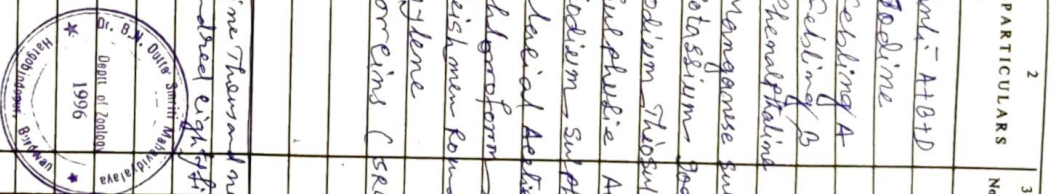 2
3
PARTICULARS
No
Anti A+B+D
Iodine
Fehling A
Fehling B
Phenalpthaline
Manganese Su
Potassium
Sodium Thiosul
Sulphudic A
Sodium Sulp
Glacial Acetic
Chloroform
Leishmen Pow
Xylene
orceins (SR
ine Thousand n
ndred eighty fi
Dr. B.N. Dutta Smriti Mahavidyalaya
Deptt of Zoology
1996
Hatgobindapur, Burdwan